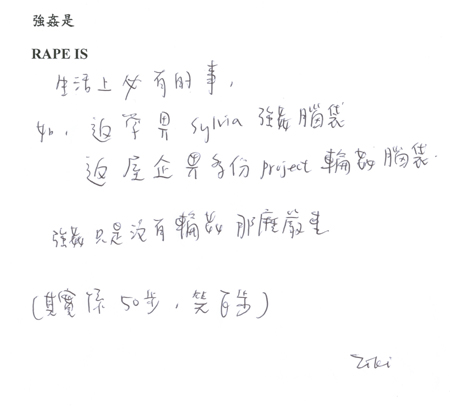 強姦是
RAPE IS
生活上必有的事,
如, 返學畀 Sylvia 強姦腦袋
返屋企畀多份 project 輪姦腦袋.
強姦只是沒有輪姦那麼嚴重
(其實係 50步, 笑百步)
Ziki